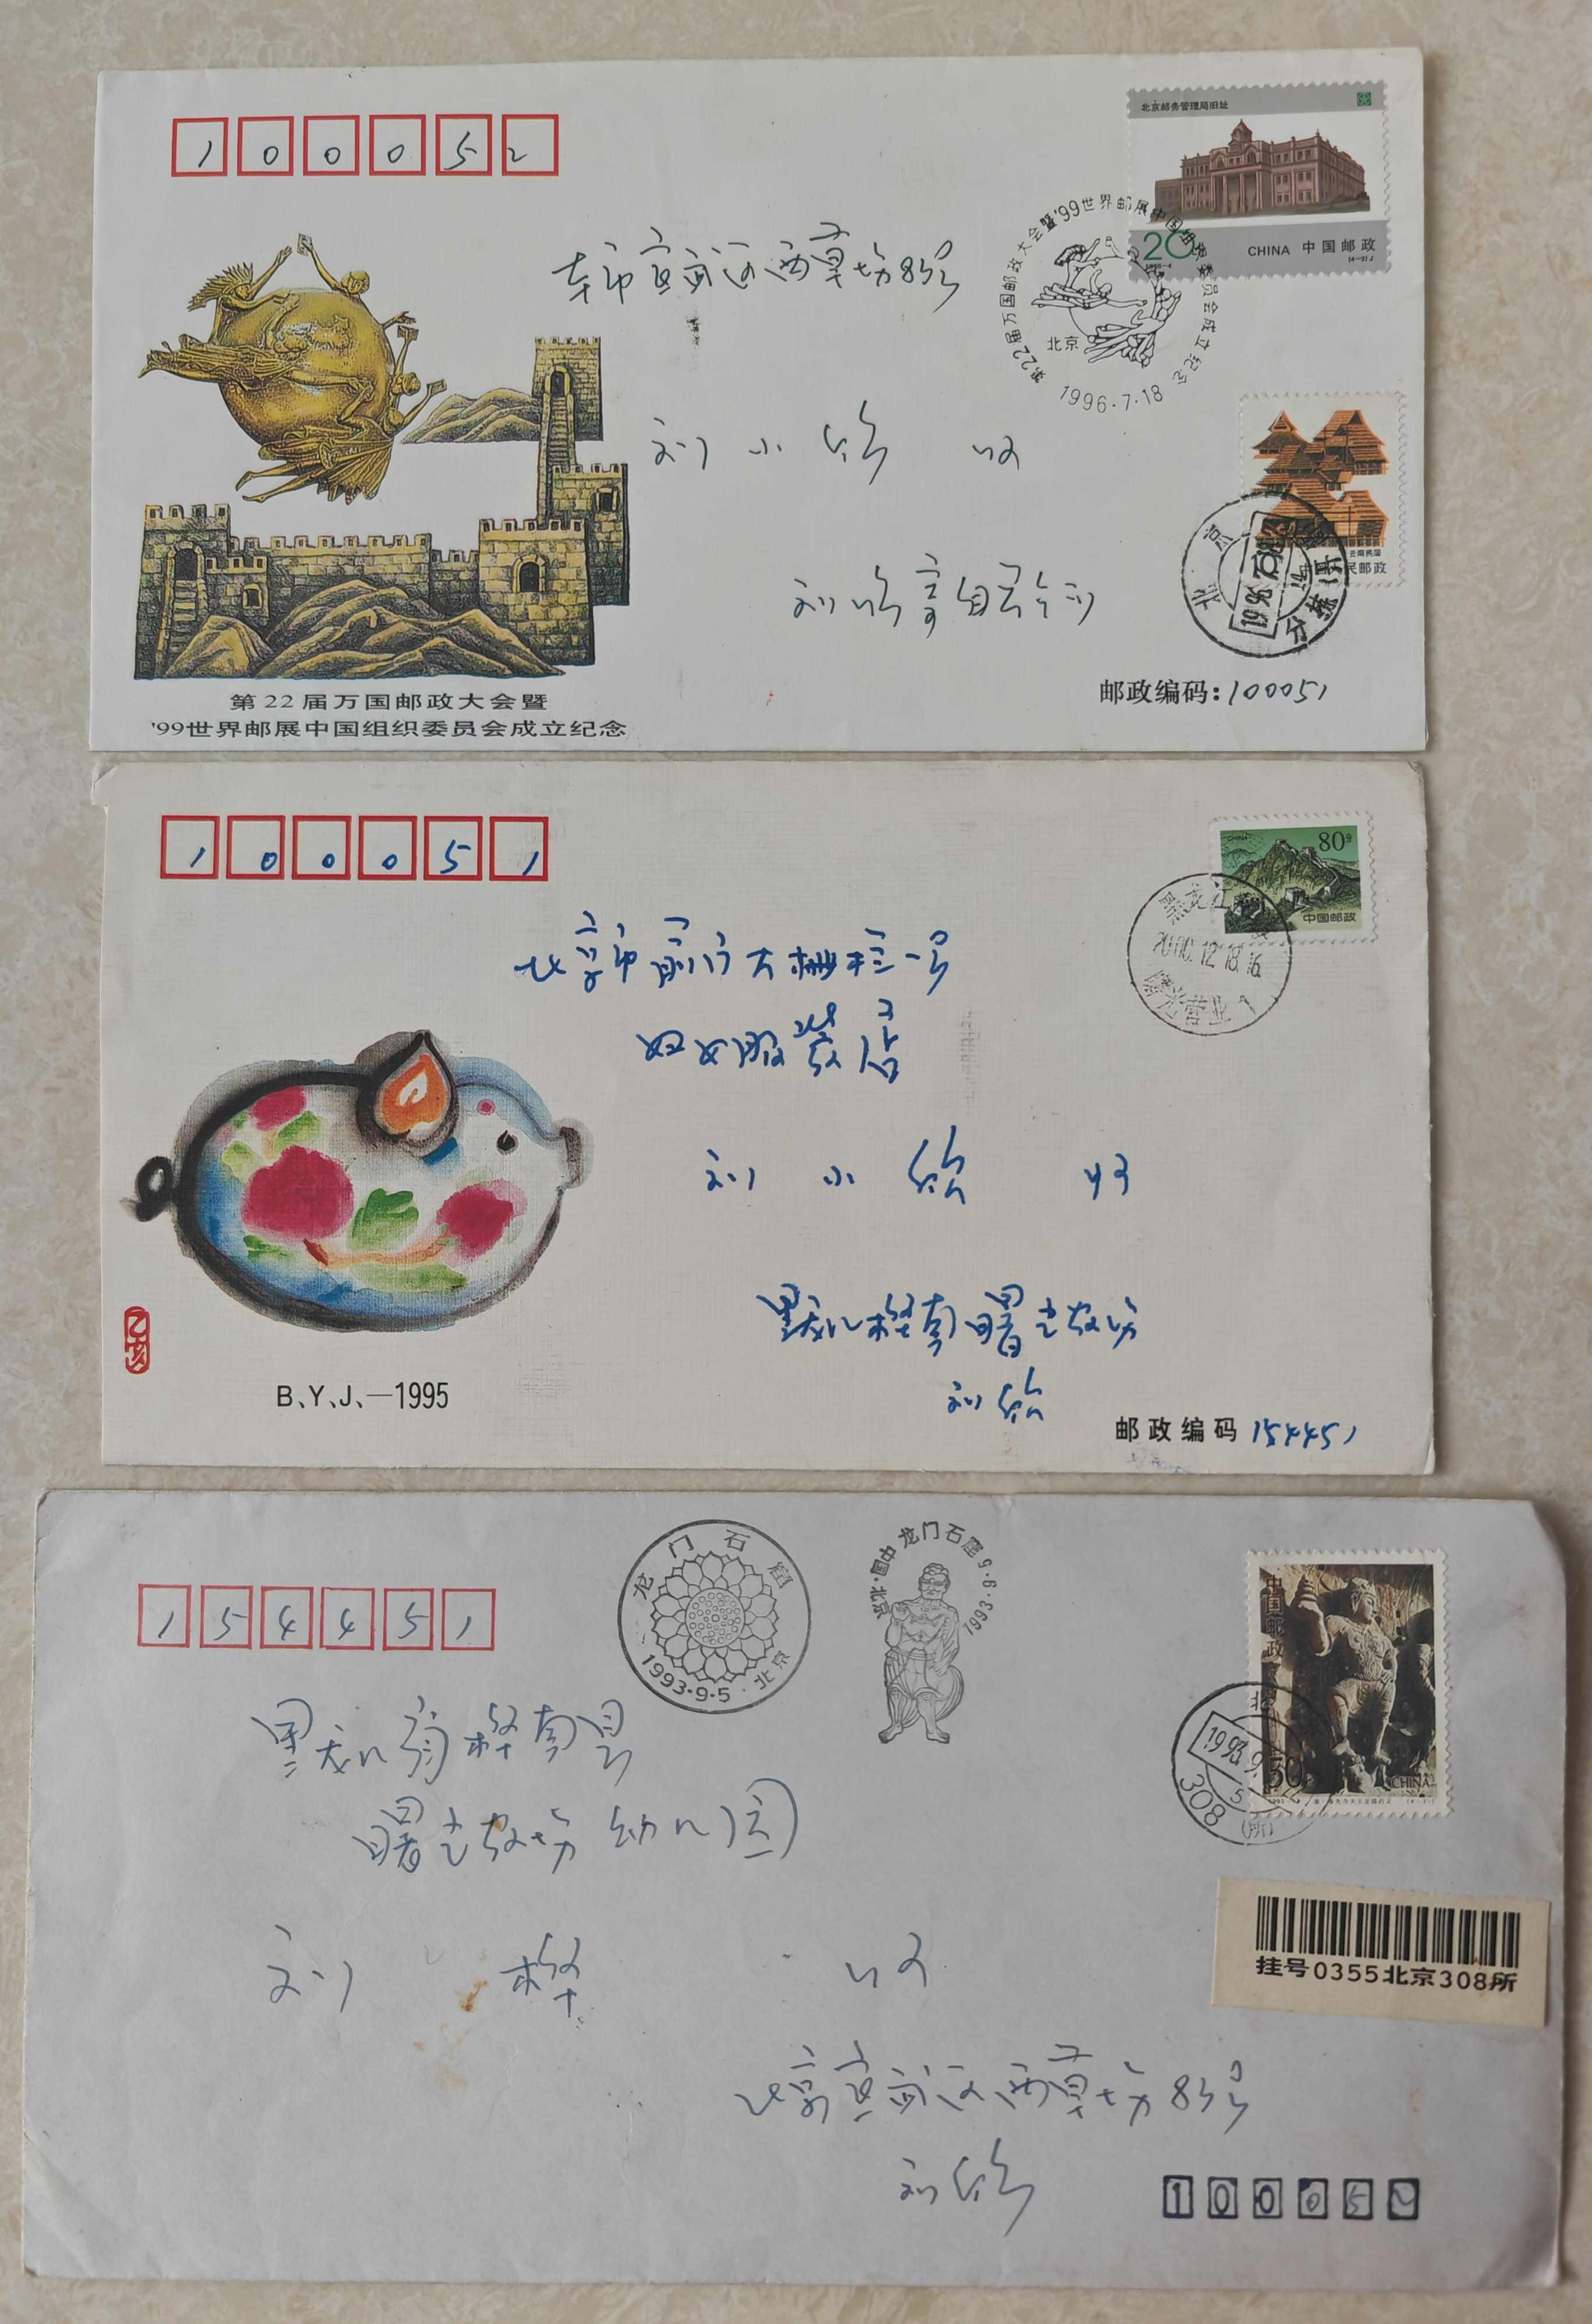 100052
北京邮务管理局旧址
20
CHINA 中国邮政
(4-2)J
第22届万国邮政大会暨'99世界邮展中国组织委员会成立纪念
北京
1996.7.18
本市宣武区西草场83号
刘小欣 收
云南民居
中国人民邮政
北京
1996.7.
分拣
邮政编码:100051
第22届万国邮政大会暨
'99世界邮展中国组织委员会成立纪念
100051
CHINA
80分
中国邮政
黑龙江
2000.12.18.16
北京市前门大栅栏一号
妇女服装店
刘小欣 收
黑龙江桦南曙光农场
刘欣
乙亥
B、Y、J、—1995
邮政编码 154451
154451
龙门石窟
1993·9·5·北京
北京·中国 龙门石窟 1993·9·5
中国邮政
50
CHINA
北
1993.9.
5
308
(所)
黑龙江省桦南县
曙光农场幼儿园
刘桦 收
挂号0355北京308所
北京宣武区西草场83号
刘欣
100052